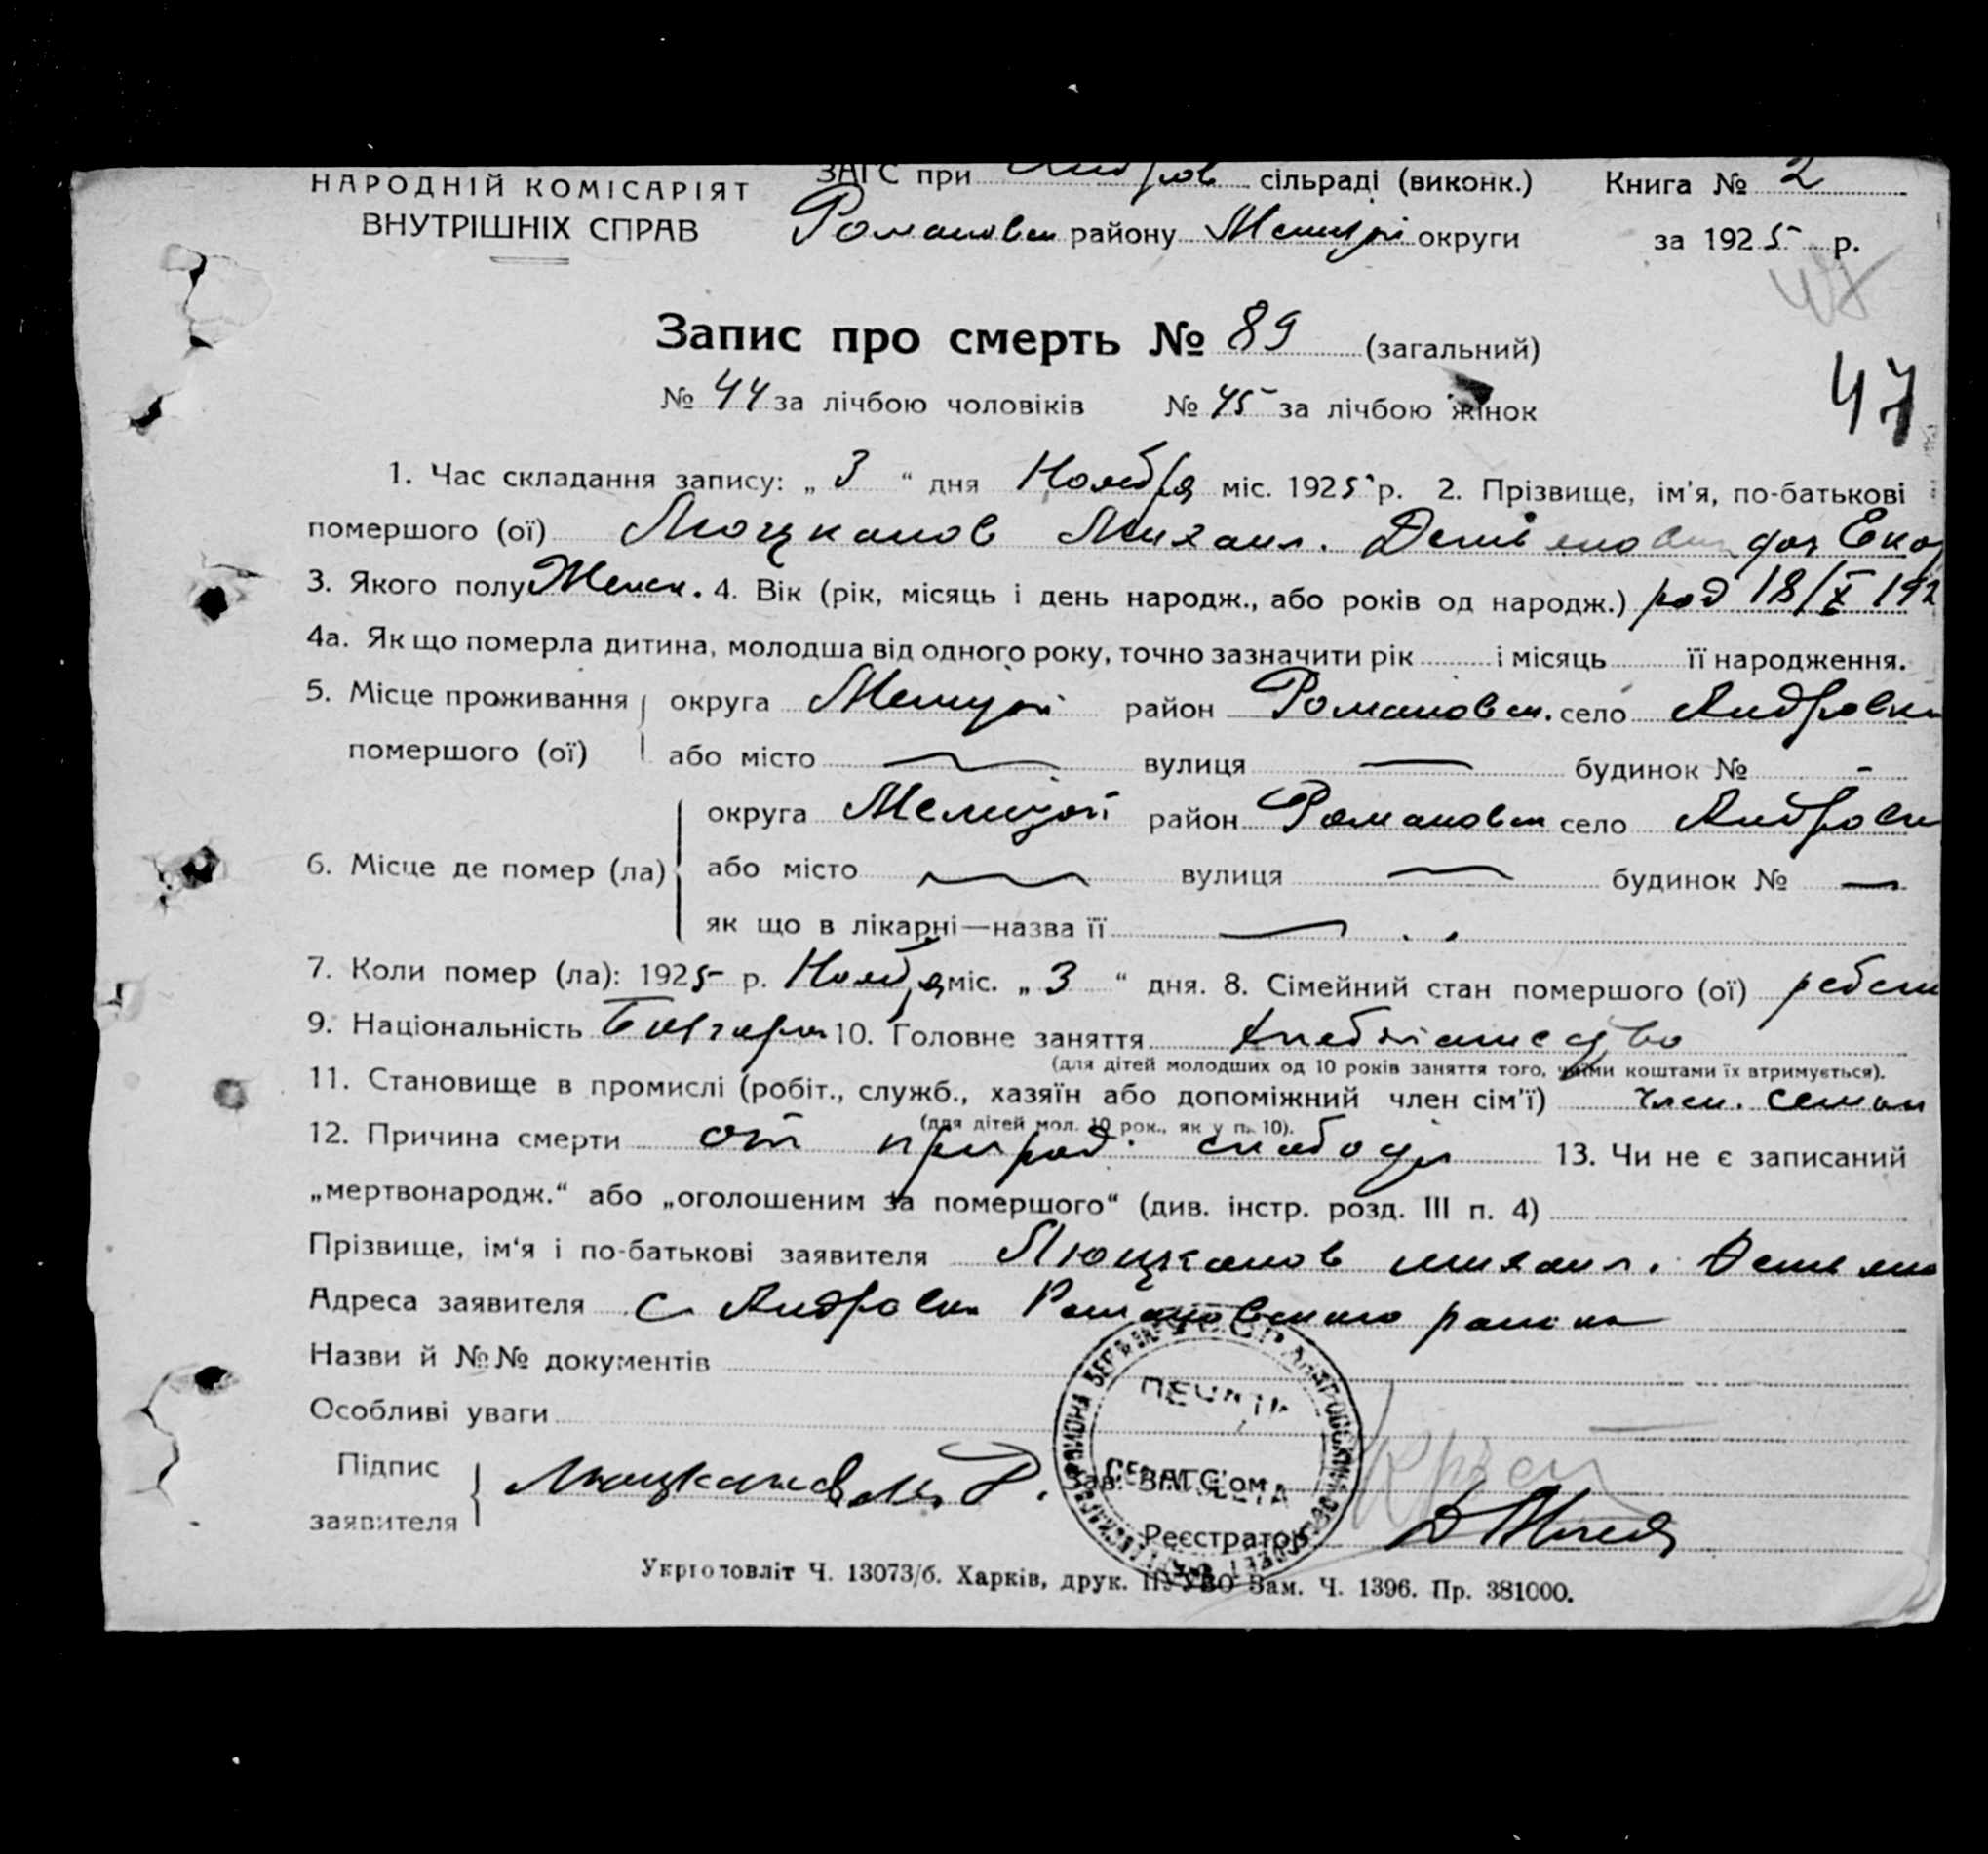 НАРОДНІЙ КОМІСАРІЯТ
ВНУТРІШНІХ СПРАВ
ЗАГС при Андров сільраді (виконк.)
Романовск району Мелитоп округи
Книга № 2
за 1925 р.
Запис про смерть № 89 (загальний)
№ 44 за лічбою чоловіків № 45 за лічбою жінок
47
1. Час складання запису: „ 3 “ дня Ноября міс. 1925 р. 2. Прізвище, ім'я, по-батькові
помершого (ої) Люцканов Михаил. Демьянович доч Ека
3. Якого полу Женск. 4. Вік (рік, місяць і день народж., або років од народж.) род 18/X 192
4а. Як що померла дитина, молодша від одного року, точно зазначити рік і місяць її народження.
5. Місце проживання помершого (ої) округа Мелитоп район Романовск. село Андровк
або місто вулиця будинок № -
6. Місце де помер (ла) округа Мелитоп район Романовск село Андровк
або місто вулиця будинок № —
як що в лікарні—назва її
7. Коли помер (ла): 1925 р. Ноября міс. „ 3 “ дня. 8. Сімейний стан помершого (ої) ребен
9. Національність Болгары 10. Головне заняття хлебопашество
(для дітей молодших од 10 років заняття того, чиїми коштами їх втримується).
11. Становище в промислі (робіт., служб., хазяїн або допоміжний член сім'ї) член. семьи
(для дітей мол. 10 рок., як у п. 10).
12. Причина смерти от природ. слабости 13. Чи не є записаний
„мертвонародж.“ або „оголошеним за помершого“ (див. інстр. розд. III п. 4)
Прізвище, ім'я і по-батькові заявителя Люцканов михаил. Демьяно
Адреса заявителя С Андровки Романовского района
Назви й №№ документів
Особливі уваги
Підпис заявителя Люцканов М. Д.
Зав. ЗАГС'ом
Реєстратор
ПЕЧАТЬ
Укрголовліт Ч. 13073/б. Харків, друк. ПУУВО Зам. Ч. 1396. Пр. 381000.